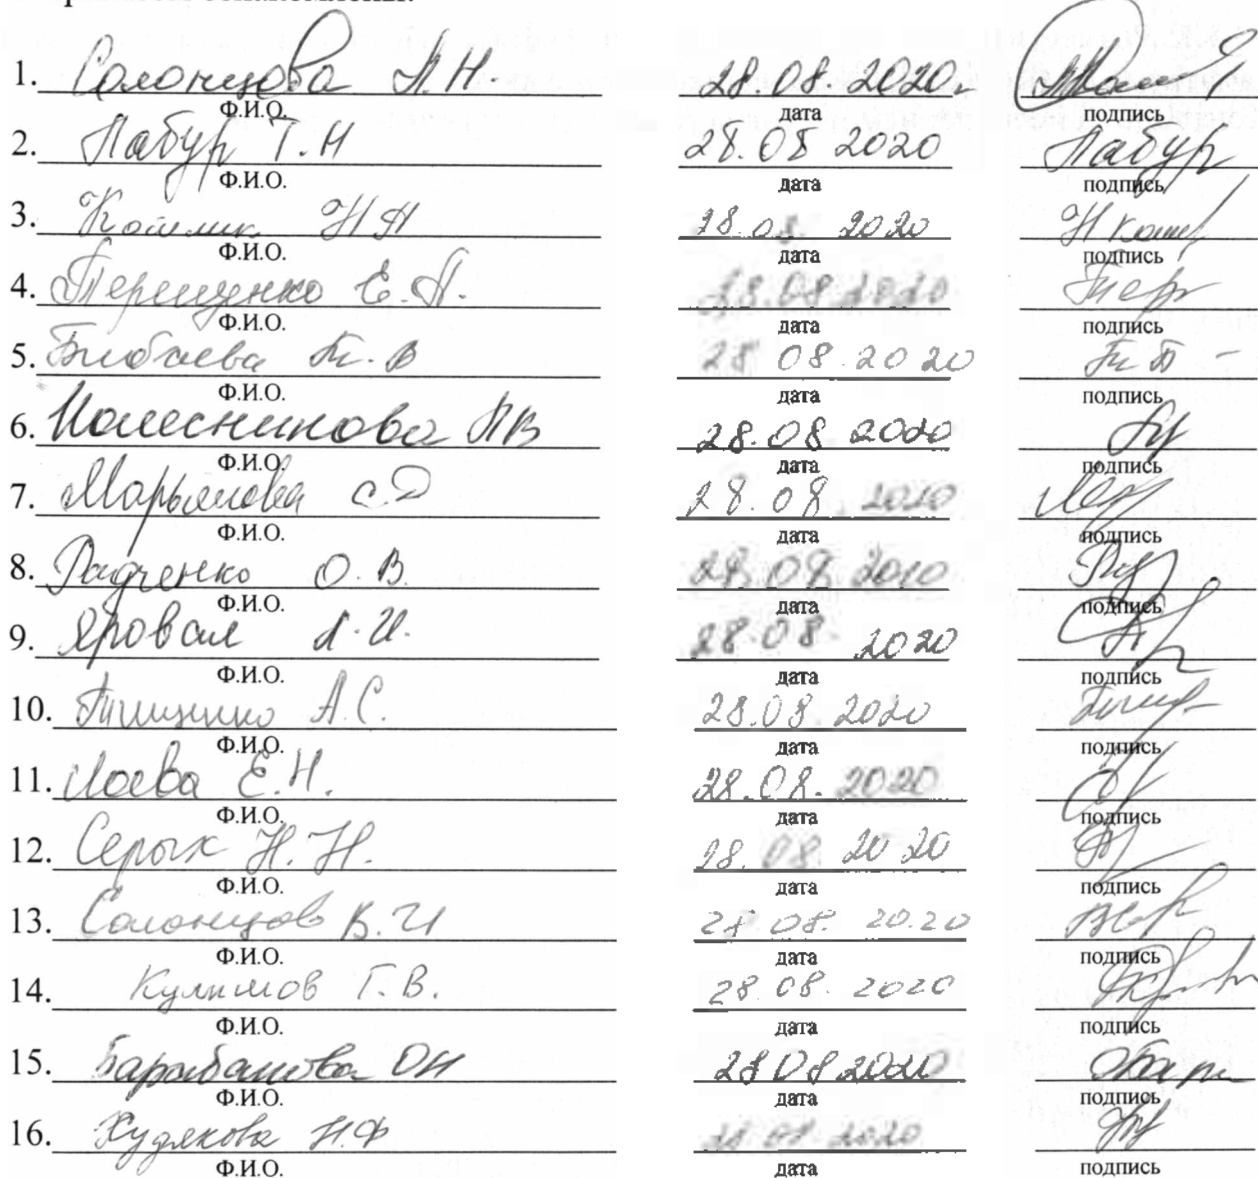 ознакомлены:
1. Солонцова Л.Н. 28.08.2020г
Ф.И.О. дата подпись
2. Лабур Т.Н 28.08 2020 Лабур
Ф.И.О. дата подпись
3. Н 28.08 2020
Ф.И.О. дата подпись
4. Терещенко Е. 28.08.2020 Тер
Ф.И.О. дата подпись
5. Бибаева В 28 08.2020
Ф.И.О. дата подпись
6. Колесникова 28.08 2020
Ф.И.О. дата подпись
7. С.Д 28.08. 2020
Ф.И.О. дата подпись
8. Радченко О.В. 28.08 2020
Ф.И.О. дата подпись
9. Яровая Л.И. 28.08. 2020
Ф.И.О. дата подпись
10. А.С. 28.08.2020
Ф.И.О. дата подпись
11. Лоева Е.Н. 28.08. 2020
Ф.И.О. дата подпись
12. Серых Н.Н. 28.08 2020
Ф.И.О. дата подпись
13. Солонцов В.И 28 08. 2020
Ф.И.О. дата подпись
14. Г.В. 28 08. 2020
Ф.И.О. дата подпись
15. Барабанова ОН 28 08 2020
Ф.И.О. дата подпись
16. Худякова Н.Ф 28 08 2020
Ф.И.О. дата подпись